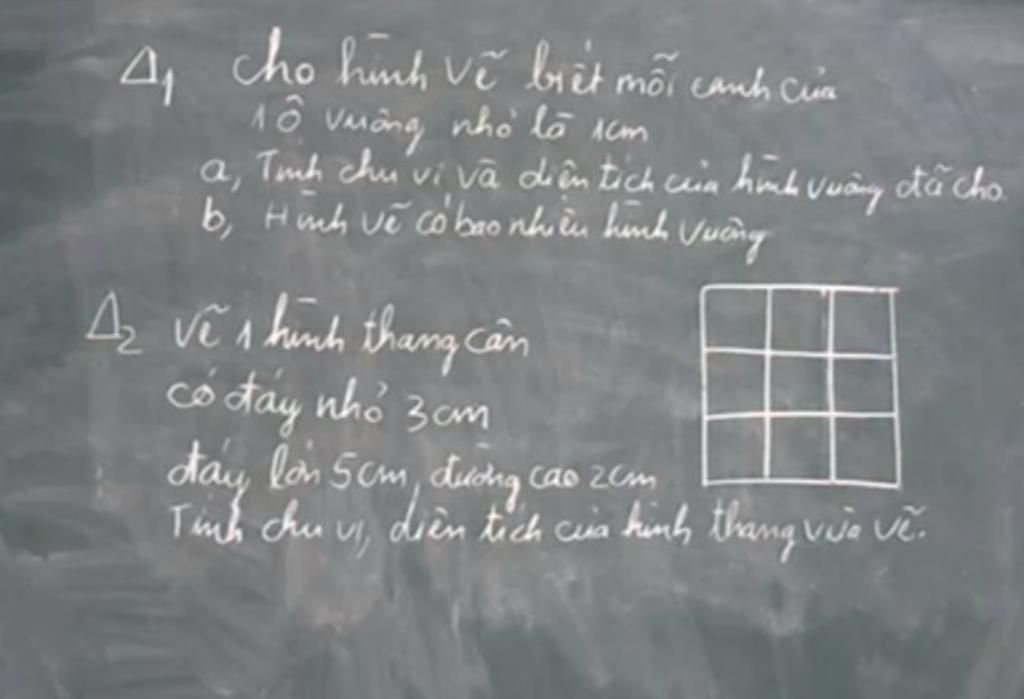 Δ1 Cho hình vẽ biết mỗi cạnh của
1 ô vuông nhỏ là 1cm
a, Tính chu vi và diện tích của hình vuông đã cho.
b, Hình vẽ có bao nhiêu hình vuông
Δ2 Vẽ 1 hình thang cân
có đáy nhỏ 3cm
đáy lớn 5cm, đường cao 2cm
Tính chu vi, diện tích của hình thang vừa vẽ.